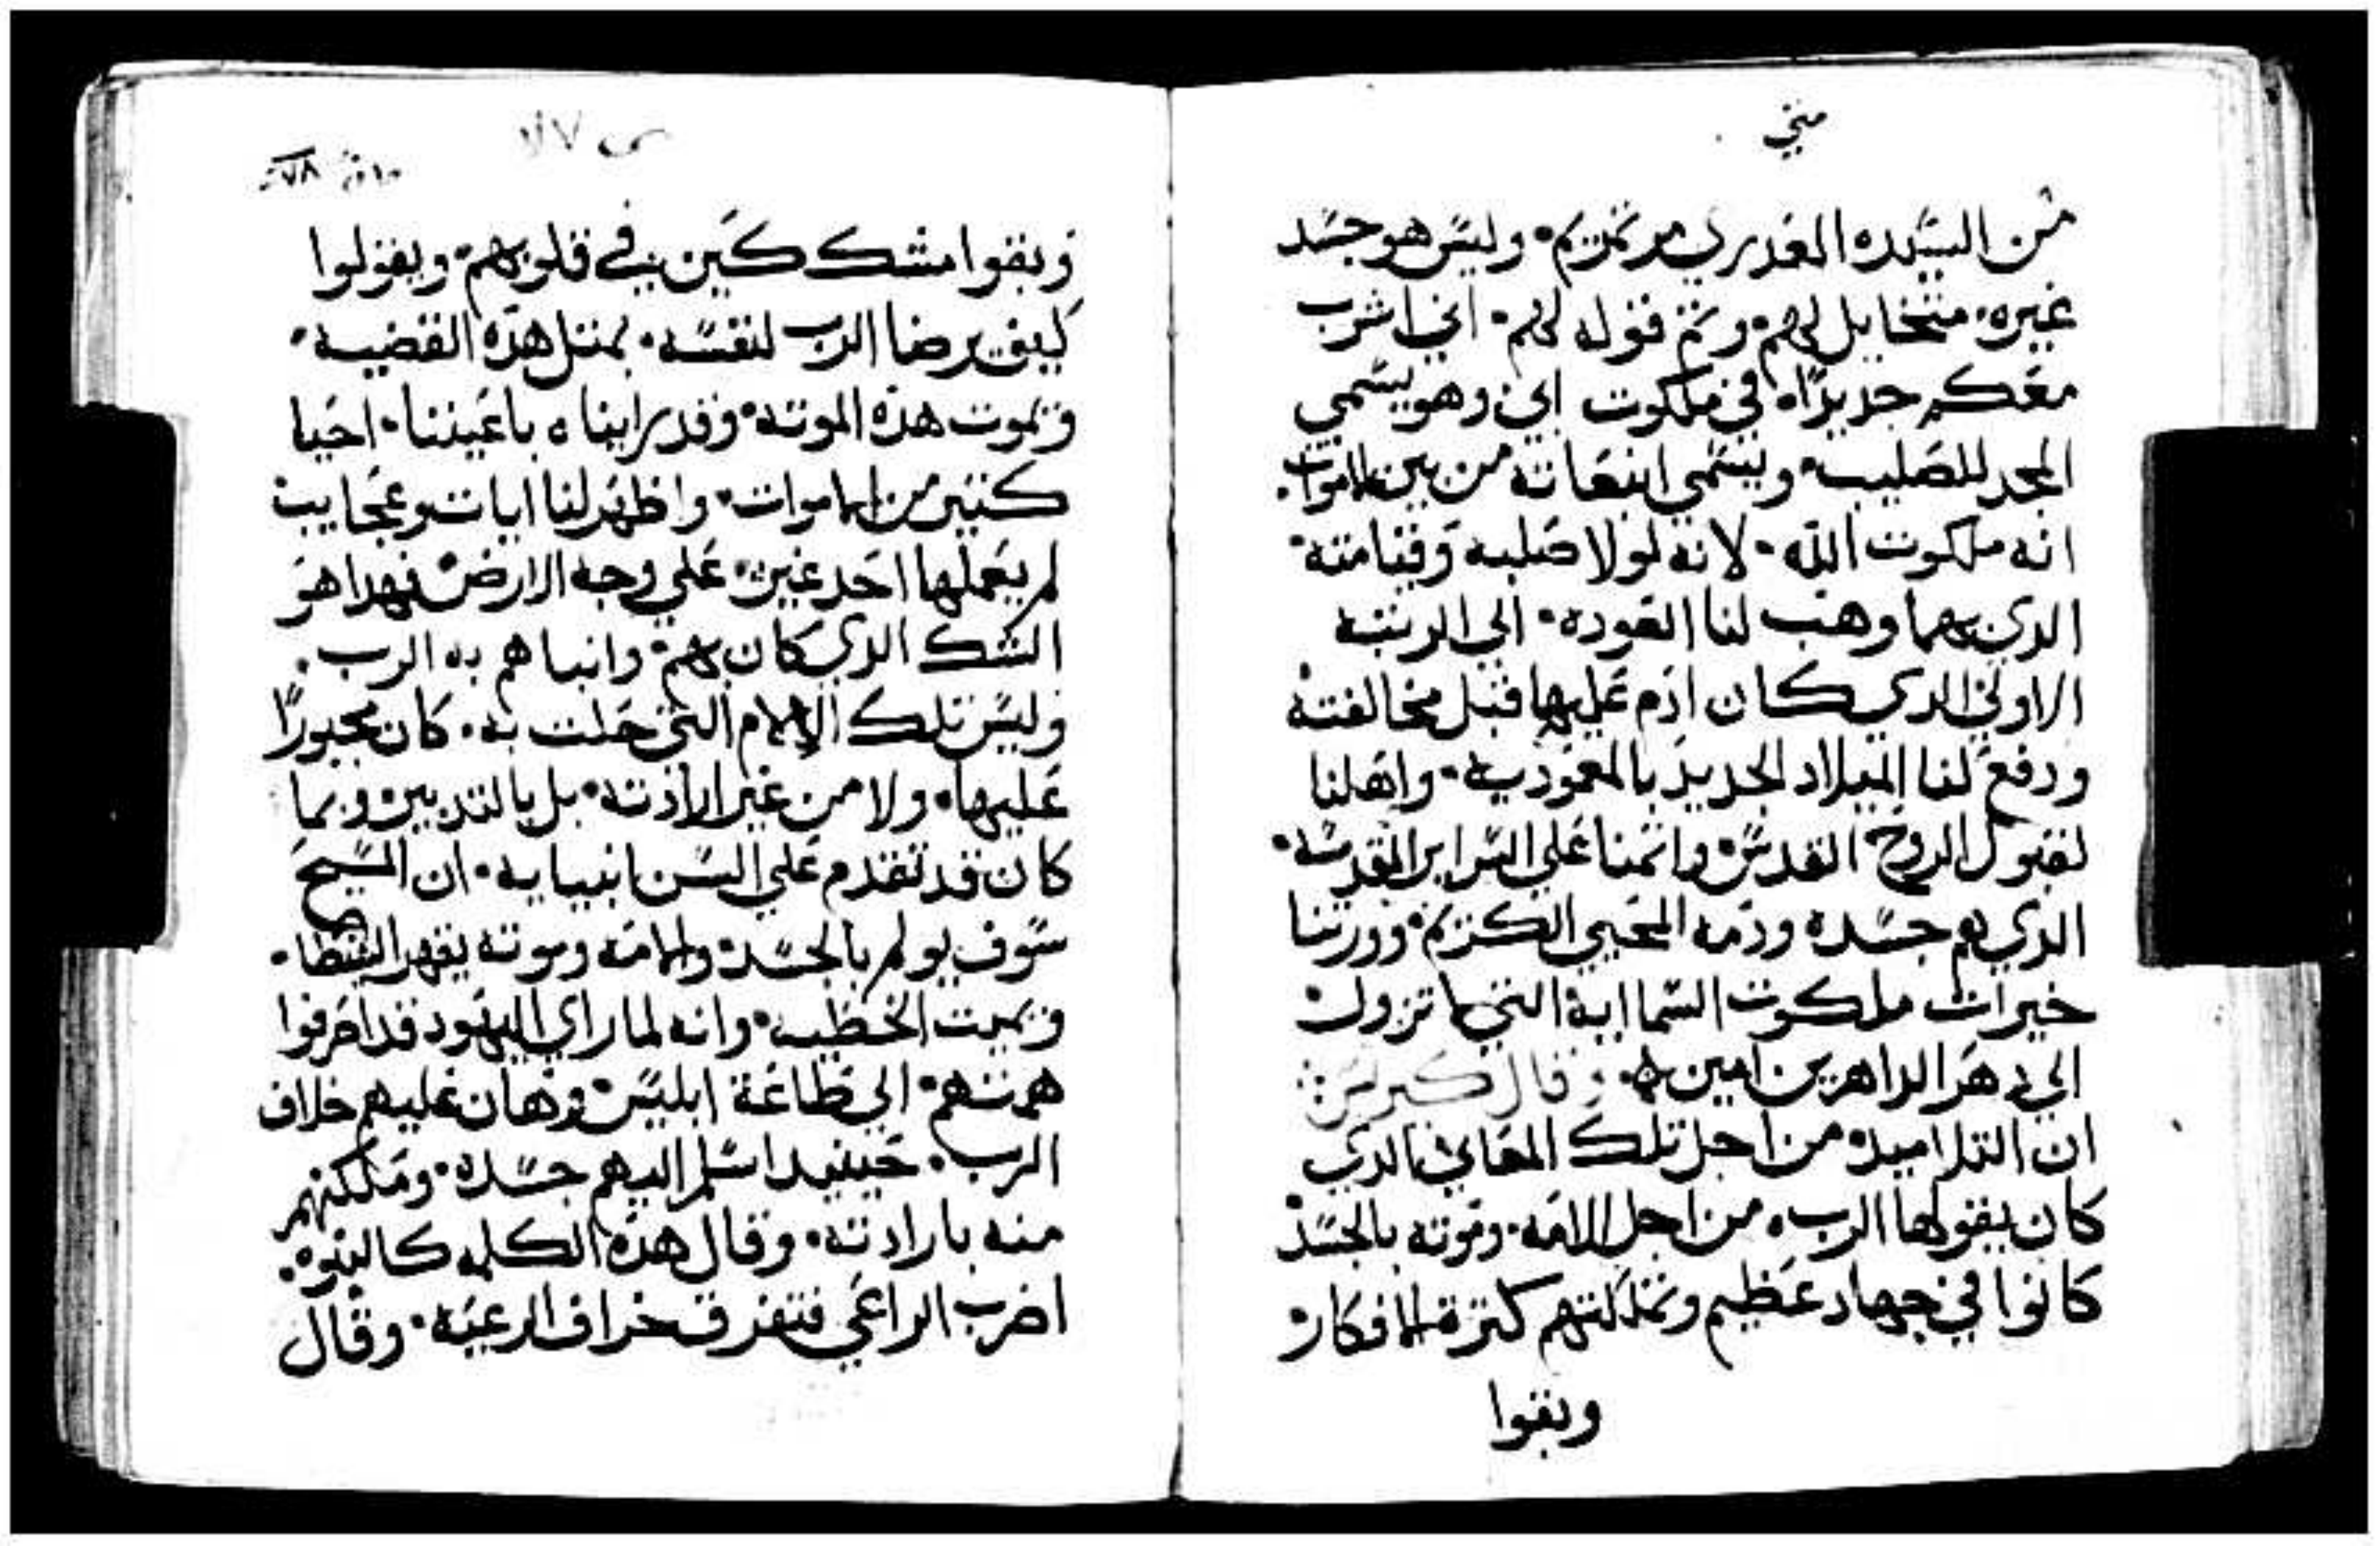 متي
من السيده العدري مرتمريم· وليس هو جسد
غيره· متخايل لهم· وثم قوله لهم· اني اشرب
معكم جديدًا· في ملكوت ابي وهو يسمي
المجد للصليب· ويسمي انبعاثه من بين الاموات·
انه ملكوت الله· لانه لولا صلبه وقيامته·
الدي بهما وهب لنا العوده· الي الرتبه
الاولي الدي كان ادم عليها قبل مخالفته
ودفع لنا الميلاد الجديد بالمعموديه· واهلنا
لقبول الروح القدس· واتمنا علي السراير المقدسه·
الدي هم جسده ودمه المحيي الكريم· وورتنا
خيرات ملكوت السماايه التي لا تزول·
الي دهر الداهرين امين· وقال كيرلس
ان التلاميد من اجل تلك المعاني الدي
كان يقولها الرب· من اجل الامه· وموته بالجسد
كانوا في جهاد عظيم وتملكتهم كترة الافكار
وبقوا
وبقوا مشككين في قلوبهم· ويقولوا
كيف يرضا الرب لنفسه· بمتل هذه القضيه·
ويموت هذه الموته· وقد رايناه باعيننا· احيا
كتير من الاموات· واظهر لنا ايات وعجايب
لم يعملها احد غيره· علي وجه الارض فهدا هو
الشك الدي كان بهم· وانباهم به الرب·
وليس تلك الالام التي حلت به· كان مجبورًا
عليها· ولا من غير ارادته· بل بالتدبير· وبما
كان قد تقدم علي السن انبيايه· ان المسيح
سوف يولم بالجسد· والامه وموته يقهر الشيطان·
ويميت الخطيه· وانه لما راي اليهود قد اصرفوا
همتهم· الي طاعة ابليس· وهان عليهم خلاف
الرب· حينيد اسلم اليهم جسده· ومكنهم
منه بارادته· وقال هذه الكلمه كالنبوه·
اضرب الراعي فتفرق خراف الرعيه· وقال